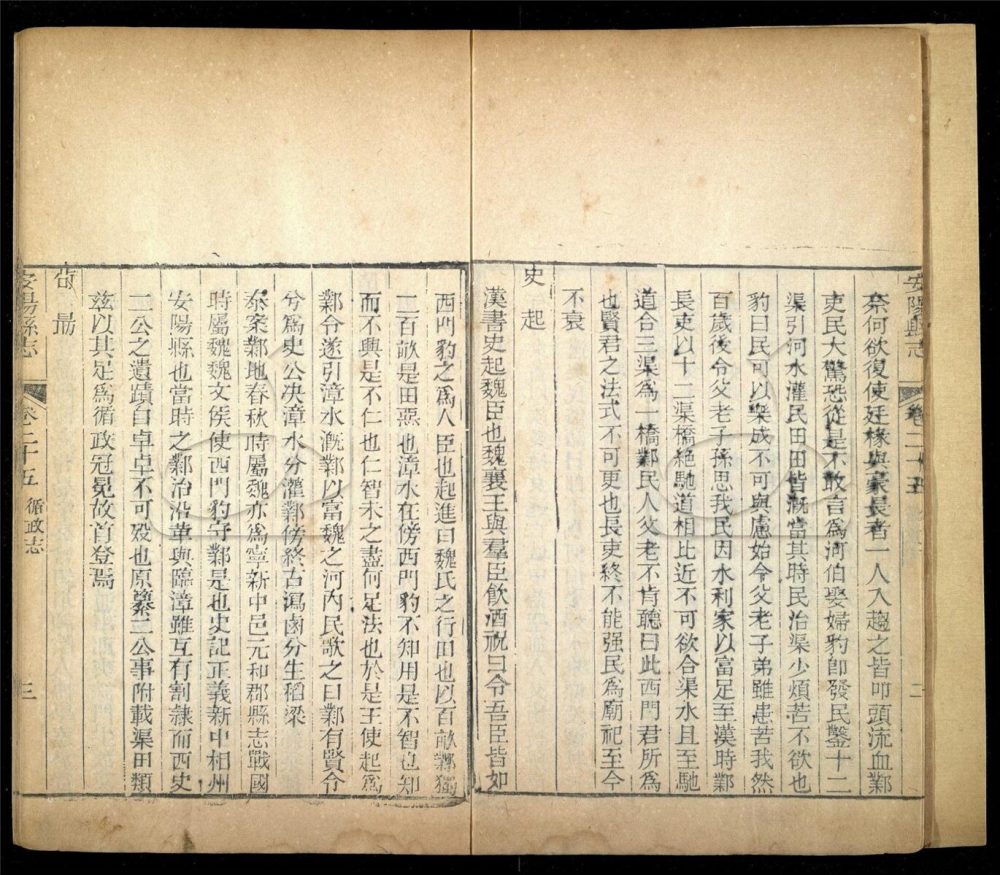 安陽縣志
卷二十五
二
奈何欲復使廷掾與豪長者一人入趨之皆叩頭流血鄴
吏民大驚恐從是不敢言爲河伯娶婦豹卽發民鑿十二
渠引河水灌民田田皆漑當其時民治渠少煩苦不欲也
豹曰民可以樂成不可與慮始今父老子弟雖患苦我然
百歲後令父老子孫思我民因水利家以富足至漢時鄴
長吏以十二渠橋絶馳道相比近不可欲合渠水且至馳
道合三渠爲一橋鄴民人父老不肯聽曰此西門君所爲
也賢君之法式不可更也長吏終不能强民爲廟祀至今
不衰
史起
漢書史起魏臣也魏襄王與羣臣飲酒祝曰令吾臣皆如
西門豹之爲人臣也起進曰魏氏之行田也以百畝鄴獨
二百畝是田惡也漳水在傍西門豹不知用是不智也知
而不興是不仁也仁智未之盡何足法也於是王使起爲
鄴令遂引漳水漑鄴以富魏之河內民歌之曰鄴有賢令
兮爲史公決漳水分灌鄴傍終古潟鹵分生稻粱
泰案鄴地春秋時屬魏亦爲寧新中邑元和郡縣志戰國
時屬魏魏文侯使西門豹守鄴是也史記正義新中相州
安陽縣也當時之鄴治沿革與臨漳雖互有割隸而西史
二公之遺蹟自卓卓不可殁也原纂二公事附載渠田類
兹以其足爲循政冠冕故首登焉
安陽縣志
卷二十五
循政志
三